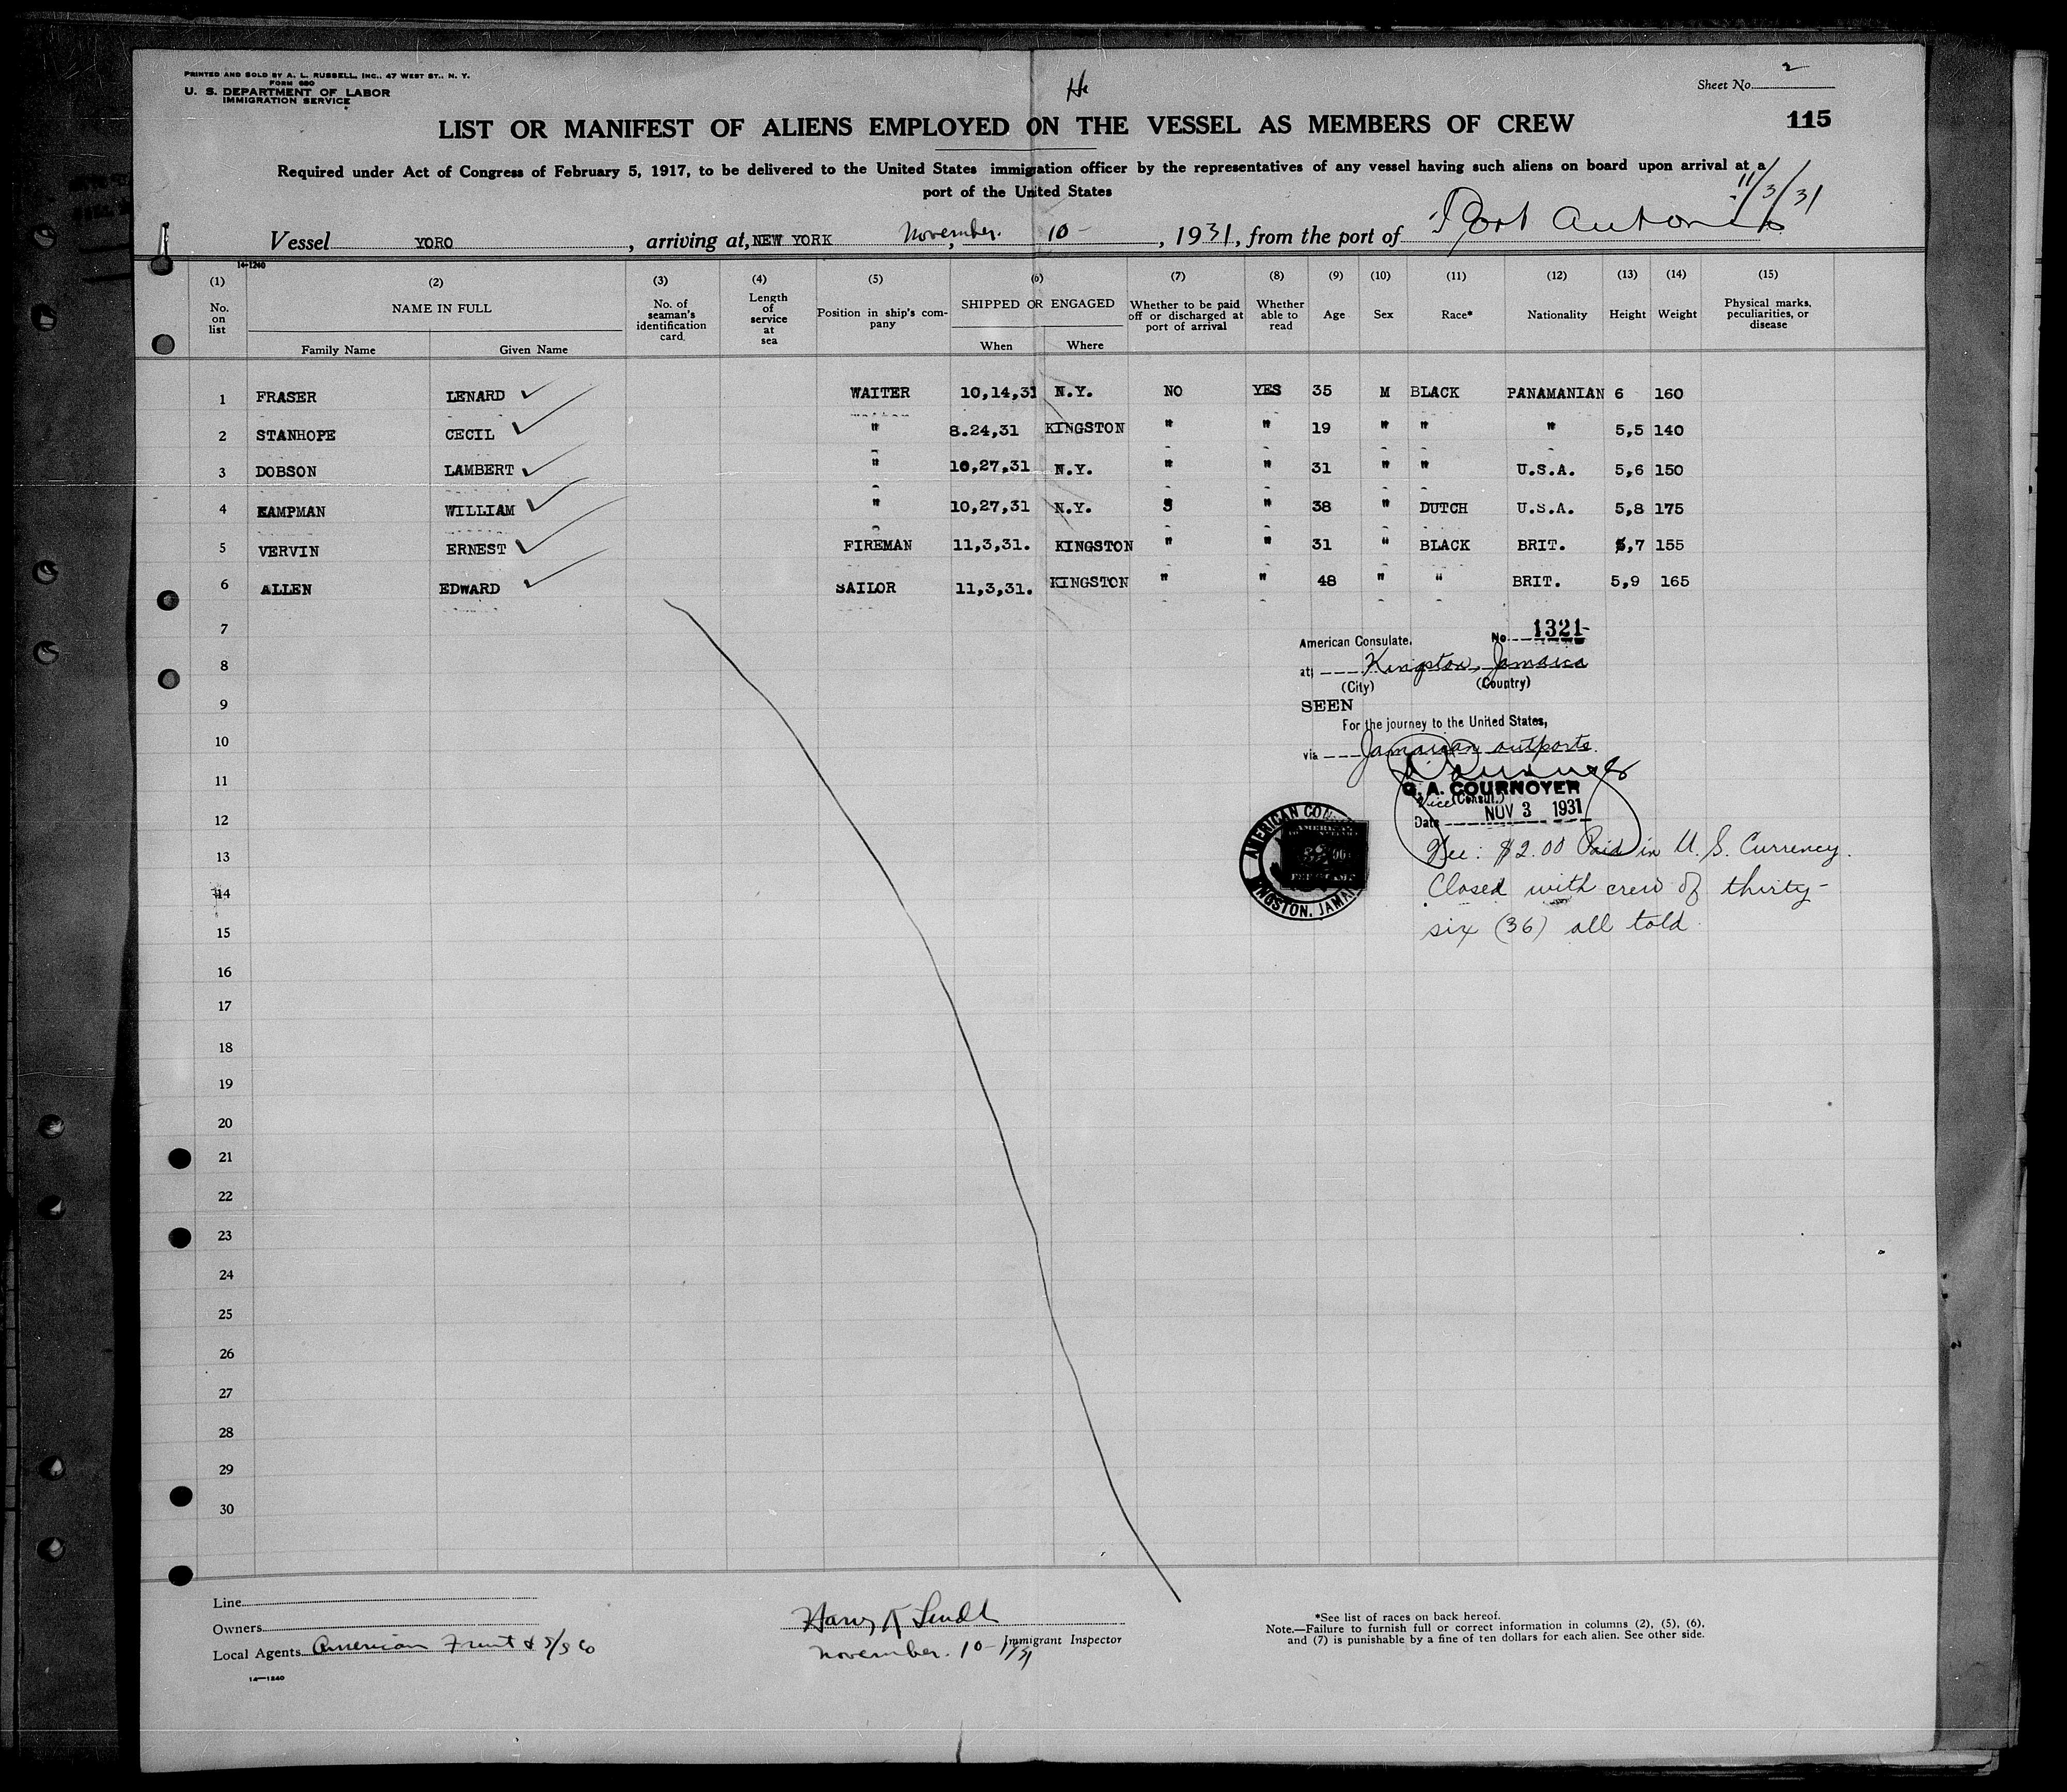 PRINTED AND SOLD BY A. L. RUSSELL, INC., 47 WEST ST., N. Y.
FORM 680
U. S. DEPARTMENT OF LABOR
IMMIGRATION SERVICE
Sheet No. 2
115
LIST OR MANIFEST OF ALIENS EMPLOYED ON THE VESSEL AS MEMBERS OF CREW
Required under Act of Congress of February 5, 1917, to be delivered to the United States immigration officer by the representatives of any vessel having such aliens on board upon arrival at a
port of the United States
11/3/31
Vessel YORO, arriving at, NEW YORK November 10-, 1931, from the port of Port Antonio
14-1240
(1) (2) (3) (4) (5) (6) (7) (8) (9) (10) (11) (12) (13) (14) (15)
No. on list NAME IN FULL Family Name Given Name No. of seaman's identification card Length of service at sea Position in ship's company SHIPPED OR ENGAGED When Where Whether to be paid off or discharged at port of arrival Whether able to read Age Sex Race* Nationality Height Weight Physical marks, peculiarities, or disease
1 FRASER LENARD WAITER 10,14,31 N.Y. NO YES 35 M BLACK PANAMANIAN 6 160
2 STANHOPE CECIL " 8.24,31 KINGSTON " " 19 " " " 5,5 140
3 DOBSON LAMBERT " 10,27,31 N.Y. " " 31 " " U.S.A. 5,6 150
4 KAMPMAN WILLIAM " 10,27,31 N.Y. " " 38 " DUTCH U.S.A. 5,8 175
5 VERVIN ERNEST FIREMAN 11,3,31. KINGSTON " " 31 " BLACK BRIT. 5,7 155
6 ALLEN EDWARD SAILOR 11,3,31. KINGSTON " " 48 " " BRIT. 5,9 165
7
8
9
10
11
12
13
14
15
16
17
18
19
20
21
22
23
24
25
26
27
28
29
30
American Consulate. No. 1321-
at Kingston, Jamaica
(City) (Country)
SEEN
For the journey to the United States,
via Jamaican outports.
G. A. COURNOYER
Vice (Consul.)
Date NOV 3 1931
Fee: $2.00 Paid in U. S. Currency.
Closed with crew of thirty-
six (36) all told.
AMERICAN
KINGSTON, JAMAI
Line
Owners
Local Agents American Fruit & S/S Co
14-1240
Immigrant Inspector
November. 10-1931
*See list of races on back hereof.
Note.—Failure to furnish full or correct information in columns (2), (5), (6),
and (7) is punishable by a fine of ten dollars for each alien. See other side.